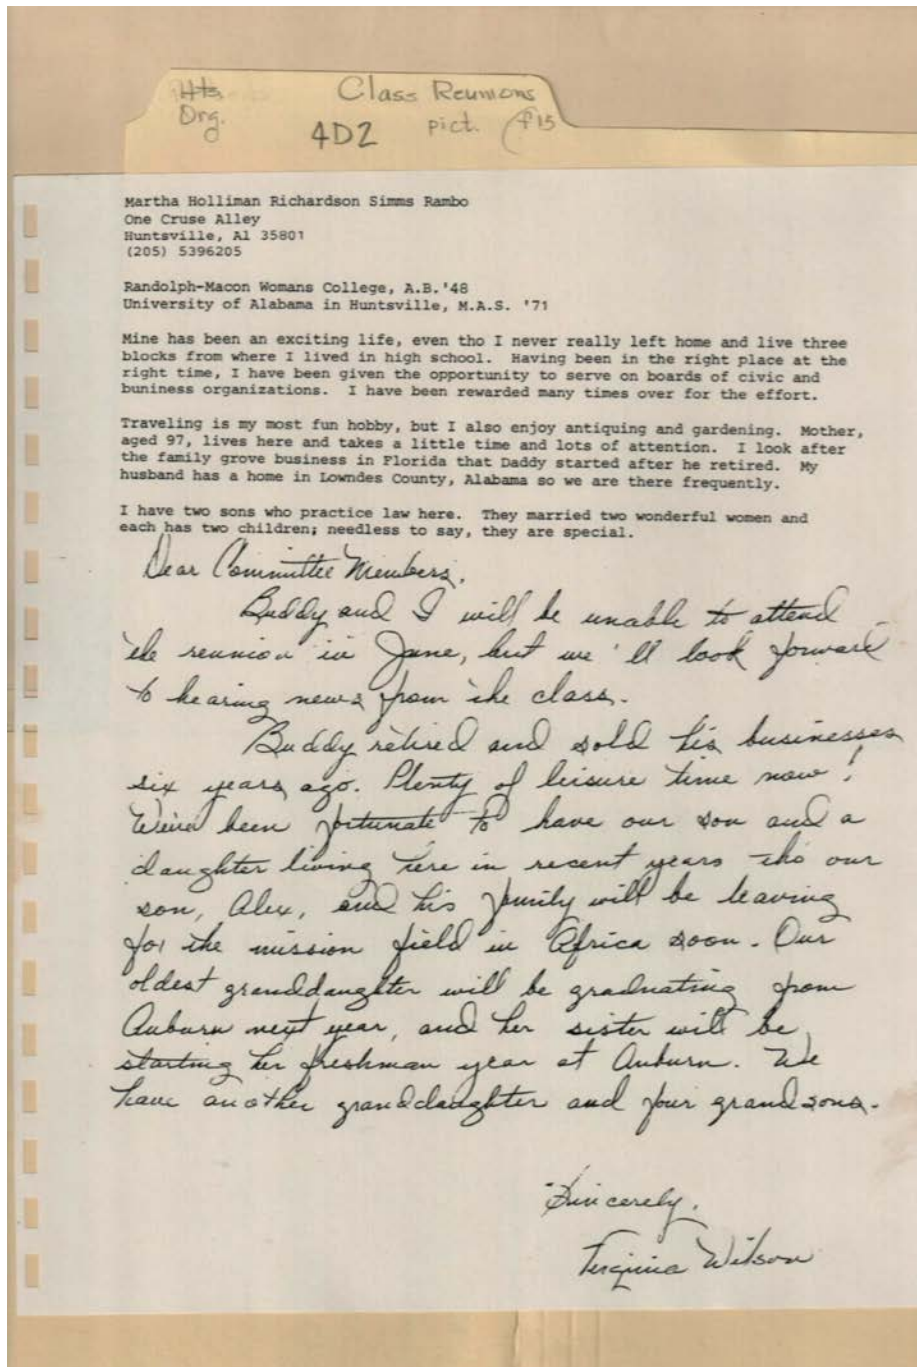 Hts.
Org.
Class Reunions
4D2
pict.
Martha Holliman Richardson Simms Rambo
One Cruse Alley
Huntsville, Al 35801
(205) 5396205
Randolph-Macon Womans College, A.B.'48
University of Alabama in Huntsville, M.A.S. '71
Mine has been an exciting life, even tho I never really left home and live three
blocks from where I lived in high school.  Having been in the right place at the
right time, I have been given the opportunity to serve on boards of civic and
buniness organizations.  I have been rewarded many times over for the effort.
Traveling is my most fun hobby, but I also enjoy antiquing and gardening.  Mother,
aged 97, lives here and takes a little time and lots of attention.  I look after
the family grove business in Florida that Daddy started after he retired.  My
husband has a home in Lowndes County, Alabama so we are there frequently.
I have two sons who practice law here.  They married two wonderful women and
each has two children; needless to say, they are special.
Dear Committee Members,
Buddy and I will be unable to attend
the reunion in June, but we'll look forward
to hearing news from the class.
Buddy retired and sold his businesses
six years ago. Plenty of leisure time now!
We've been fortunate to have our son and a
daughter living here in recent years tho our
son, Alex, and his family will be leaving
for the mission field in Africa soon. Our
oldest granddaughter will be graduating from
Auburn next year, and her sister will be
starting her freshman year at Auburn. We
have another granddaughter and four grandsons.
Sincerely,
Virginia Wilson